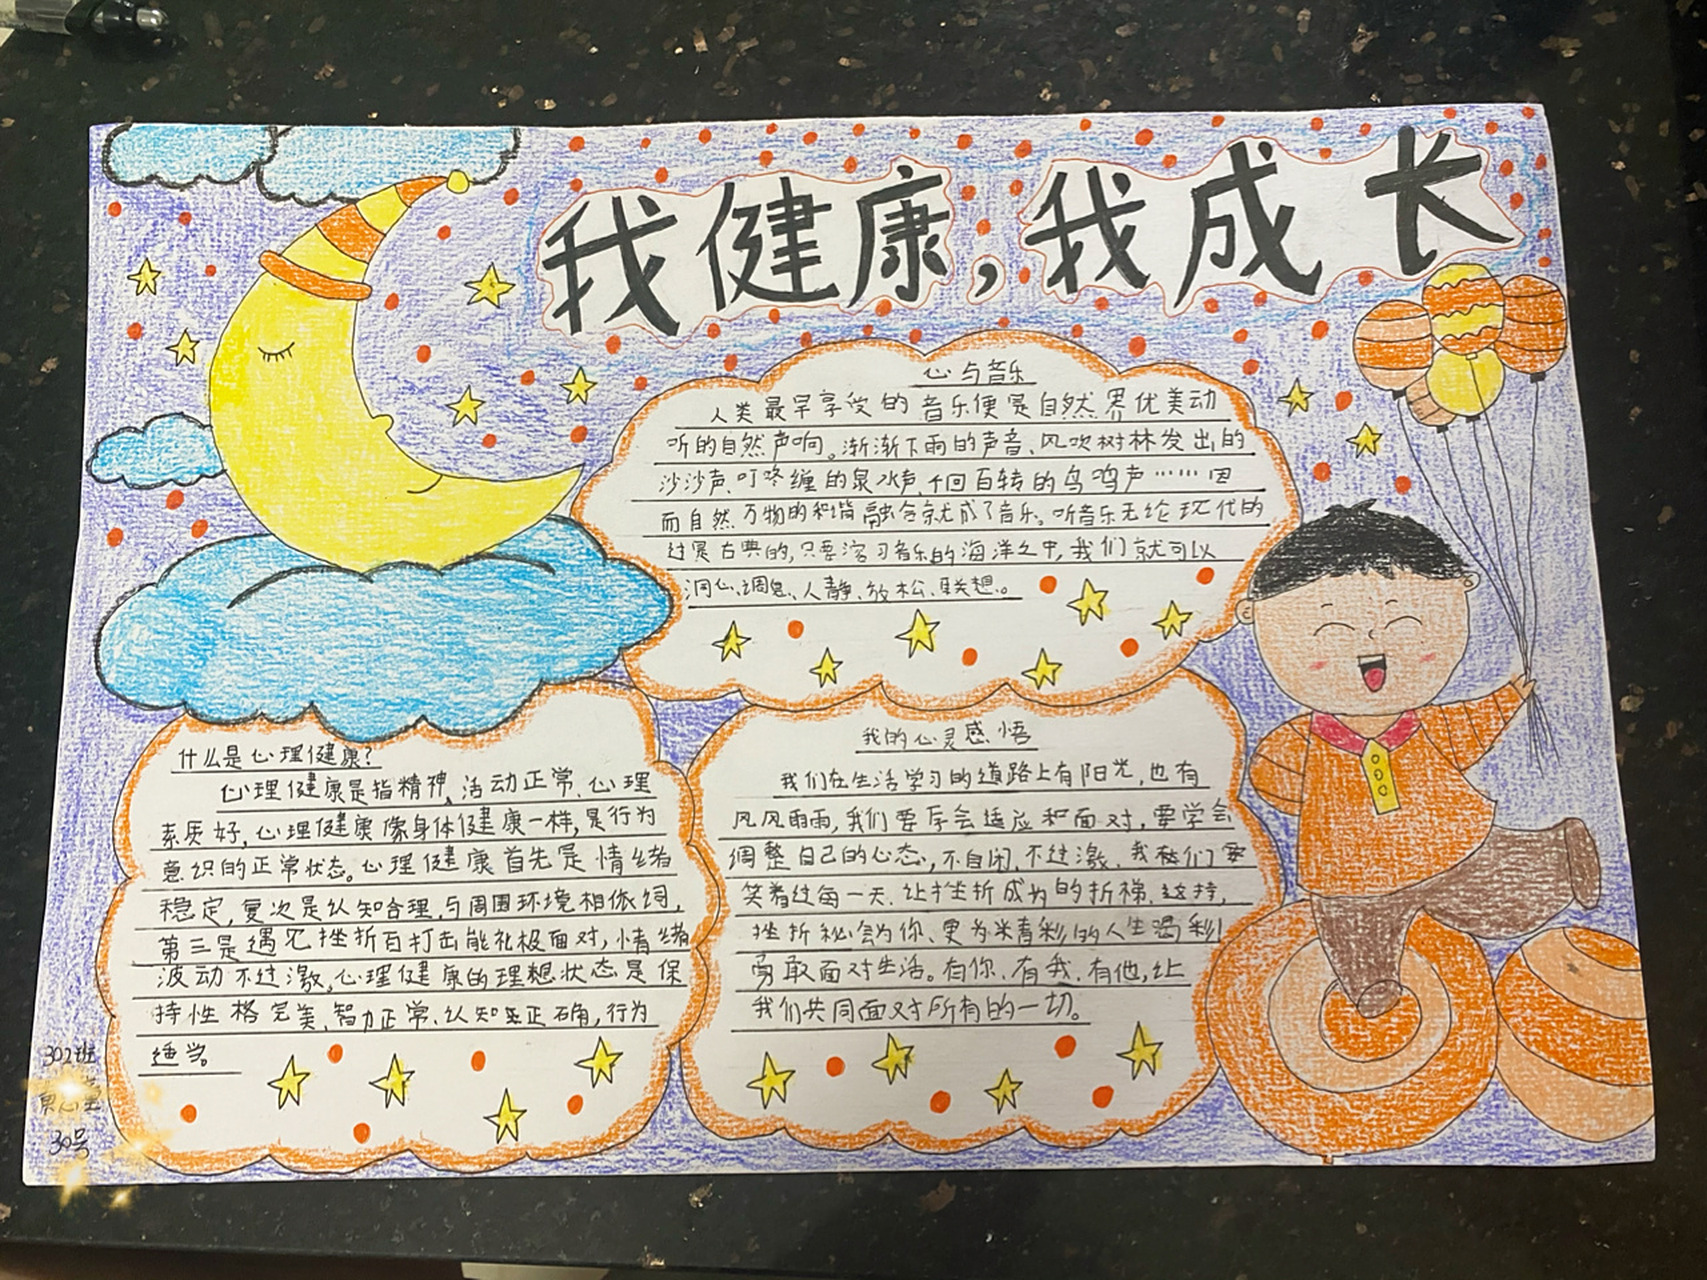 我健康,我成长
心与音乐
人类最早享受的音乐便是自然界优美动
听的自然声响。渐渐下雨的声音、风吹树林发出的
沙沙声、叮咚缠的泉水声、千回百转的鸟鸣声……因
而自然万物的和谐融合就成了音乐。听音乐无论现代的
过是古典的,只要溶习音乐的海洋之中,我们就可以
洞心、调息、人静、放松、联想。
什么是心理健康?
心理健康是指精神、活动正常、心理
素质好,心理健康像身体健康一样,是行为
意识的正常状态。心理健康首先是情绪
稳定,复次是认知合理,与周围环境相依
第三是遇见挫折百打击能礼极面对,情绪
波动不过激,心理健康的理想状态是保
持性格完美、智力正常、认知正确,行为
适当。
我的心灵感悟
我们在生活学习的道路上有阳光,也有
风风雨雨,我们要学会适应和面对,要学会
调整自己的心态,不自闭、不过激、我们要
笑着过每一天、让挫折成为的折梯、这持,
挫折会为你、更为精彩的人生喝彩!
勇敢面对生活。有你、有我、有他,让
我们共同面对所有的一切。
302班
30号